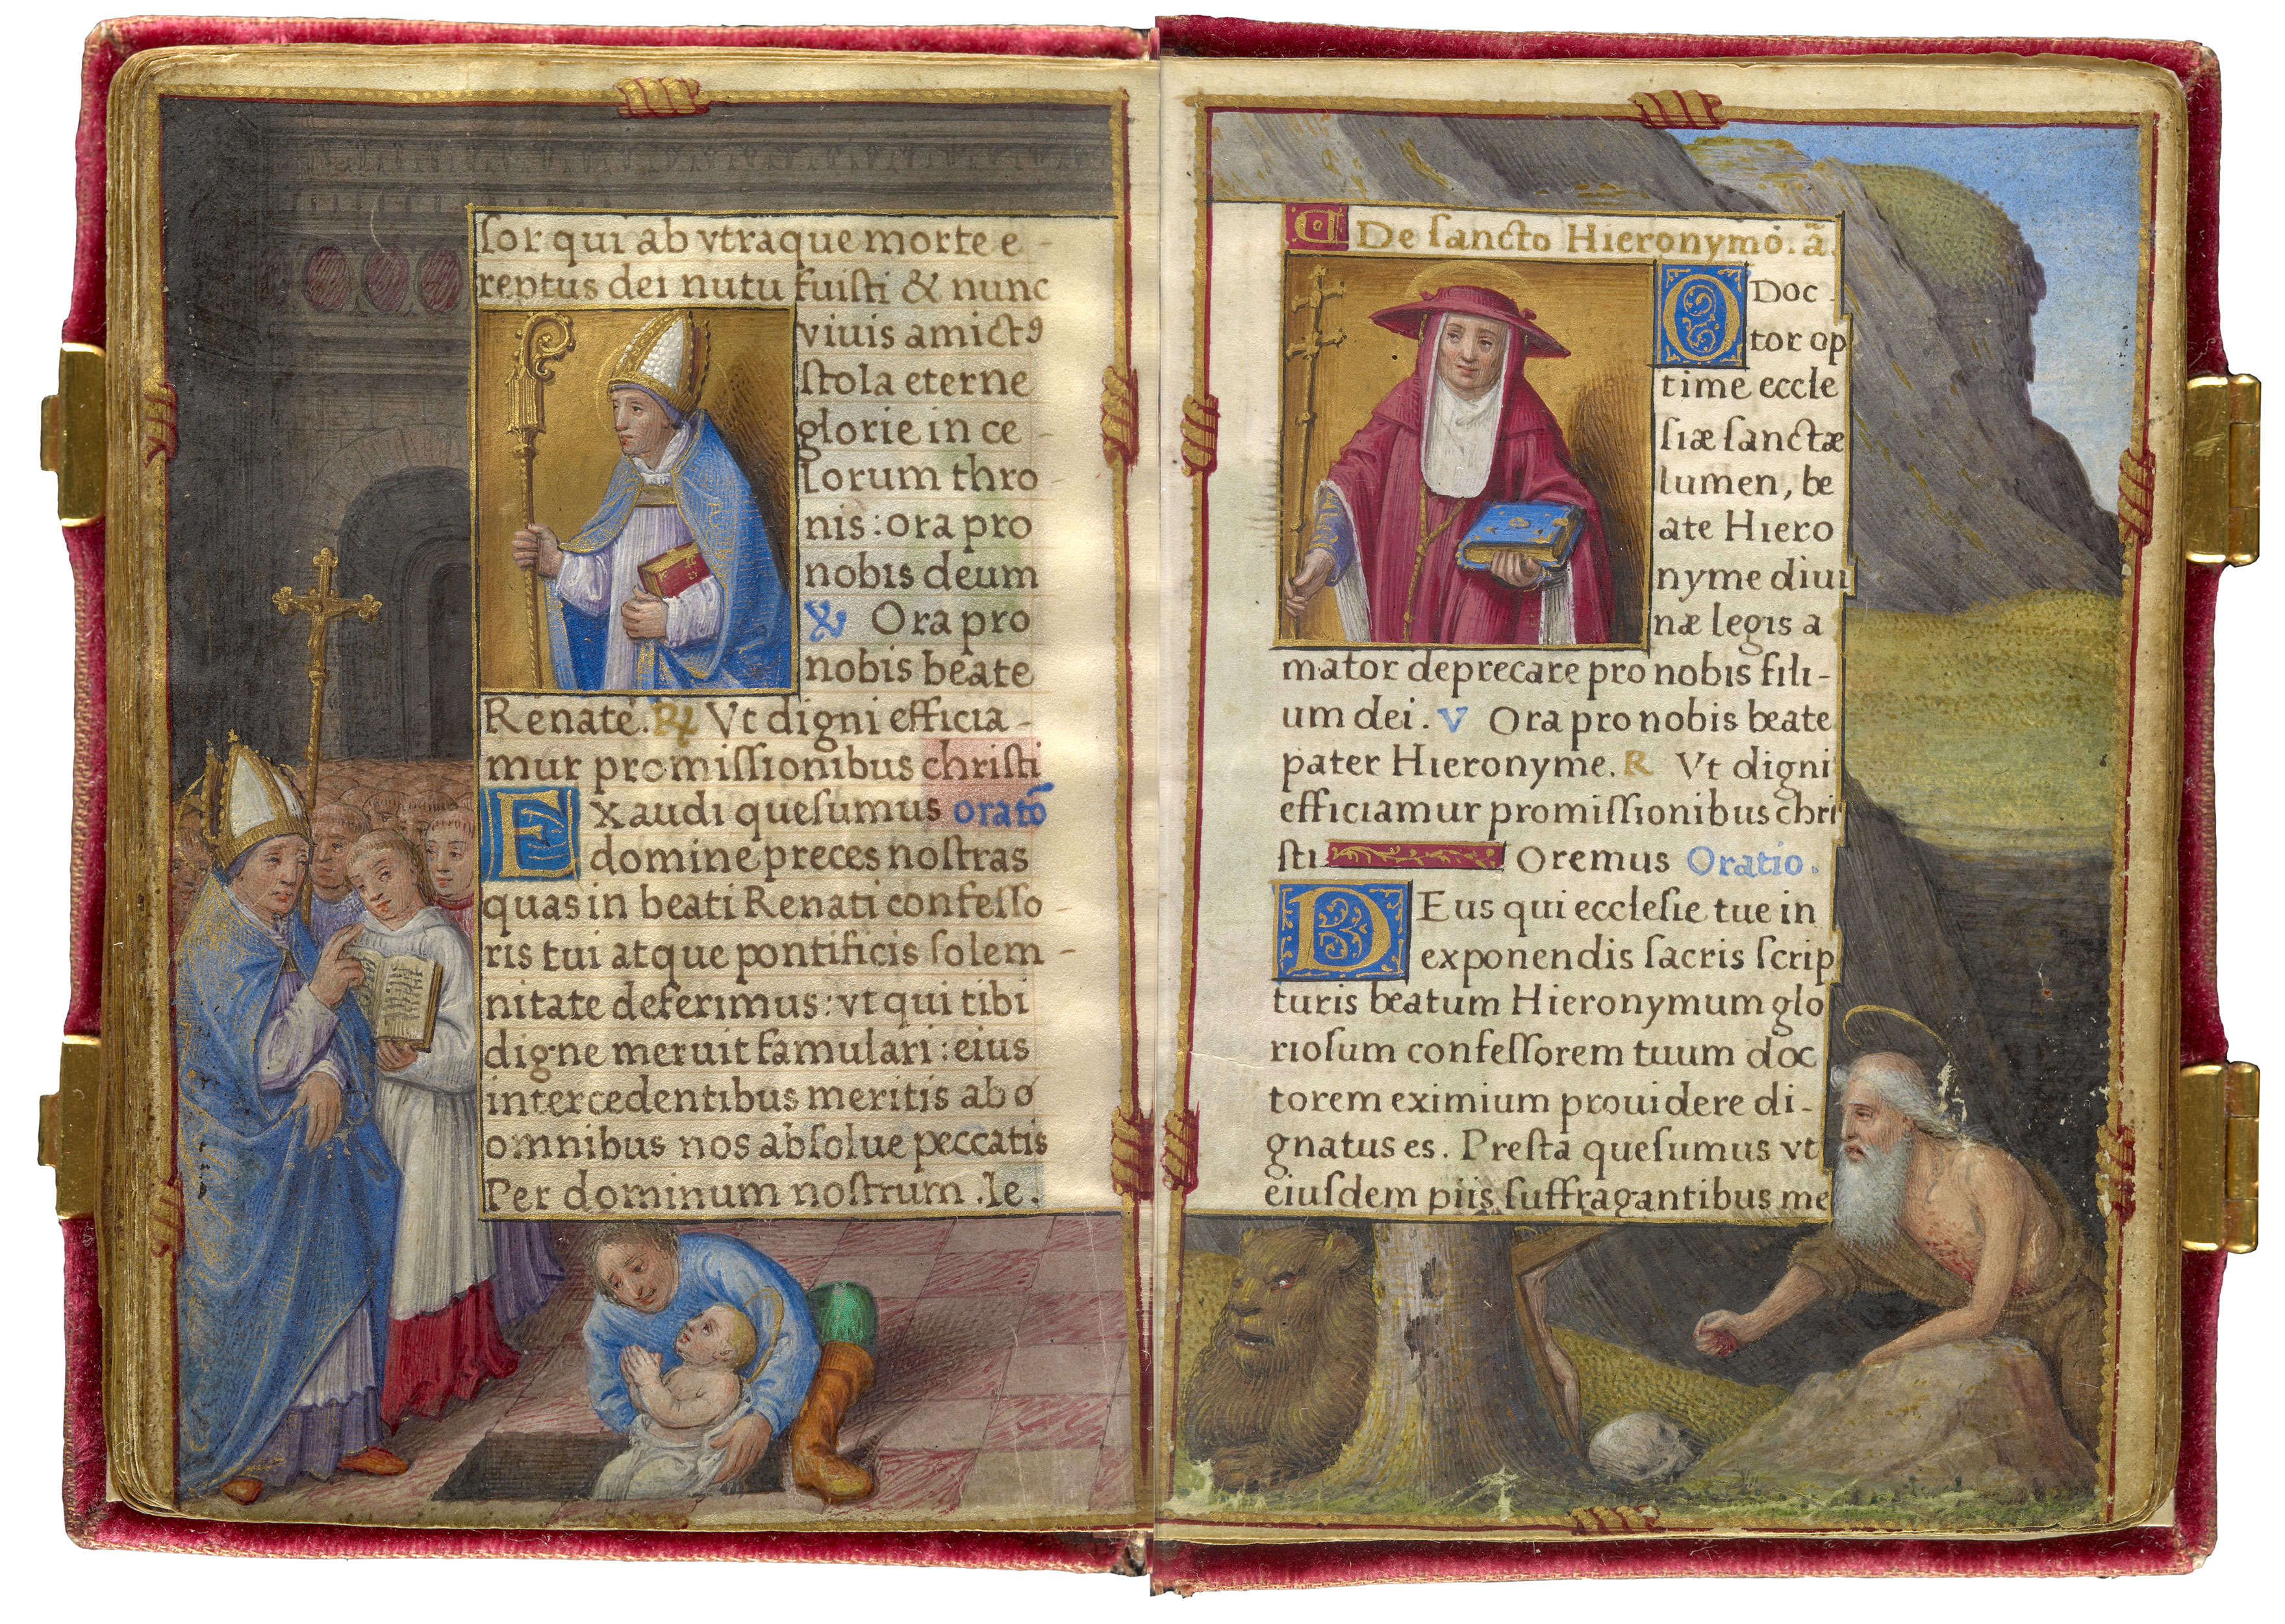 ſor qui ab vtraque morte e-
reptus dei nutu fuiſti & nunc
viuis amictꝰ
ſtola eterne
glorie in ce-
lorum thro-
nis: ora pro
nobis deum
℣ Ora pro
nobis beate
Renate. ℟ Vt digni efficia-
mur promiſſionibus chriſti
Exaudi queſumus oratō
domine preces noſtras
quas in beati Renati confeſſo-
ris tui atque pontificis ſolem-
nitate deferimus: vt qui tibi
digne meruit famulari: eius
intercedentibus meritis ab o
omnibus nos abſolue peccatis
Per dominum noſtrum .Ie.
De ſancto Hieronymo. ã.
O Doc-
tor op
time eccle
ſiæ ſanctæ
lumen, be
ate Hiero
nyme diui
næ legis a
mator deprecare pro nobis fili-
um dei. V Ora pro nobis beate
pater Hieronyme. R Vt digni
efficiamur promiſſionibus chri
ſti Oremus Oratio.
DEus qui eccleſie tue in
exponendis ſacris ſcrip
turis beatum Hieronymum glo
rioſum confeſſorem tuum doc
torem eximium prouidere di-
gnatus es. Preſta queſumus vt
eiuſdem piis ſuffragantibus me